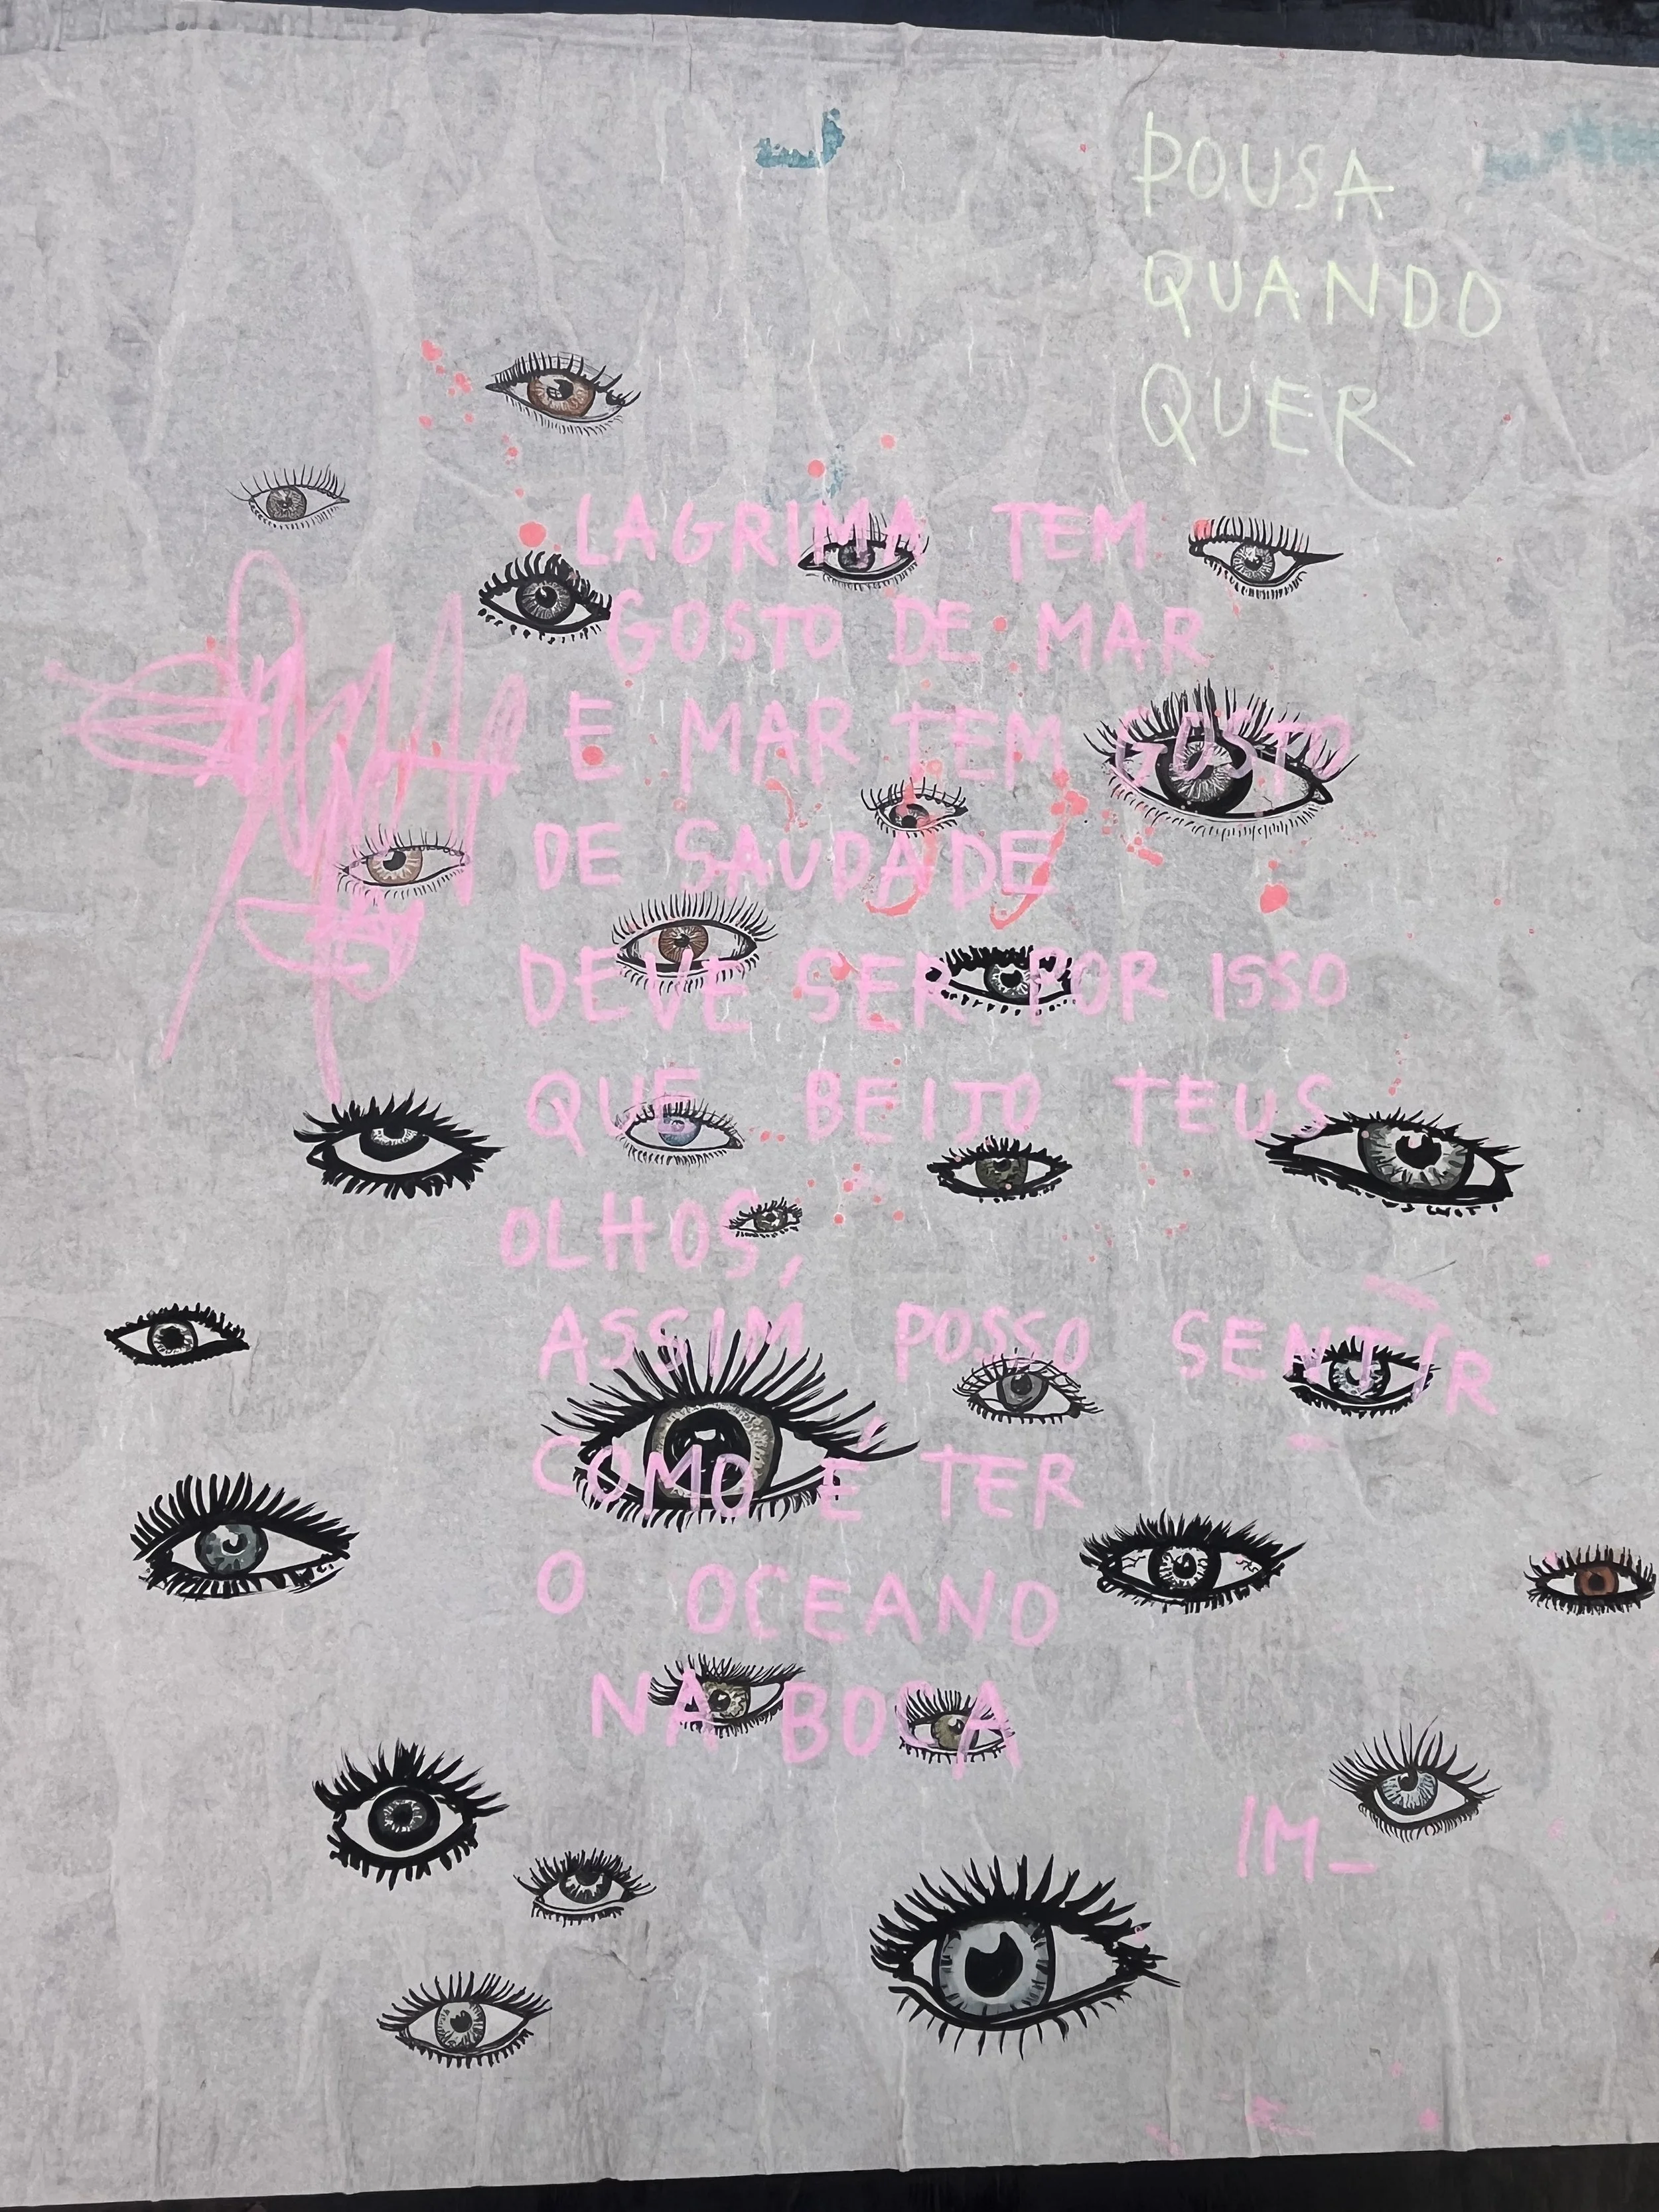 POUSA
QUANDO
QUER
LAGRIMA TEM
GOSTO DE MAR
E MAR TEM GOSTO
DE SAUDADE
DEVE SER POR ISSO
QUE BEIJO TEUS
OLHOS,
ASSIM POSSO SENTIR
COMO É TER
O OCEANO
NA BOCA
IM_